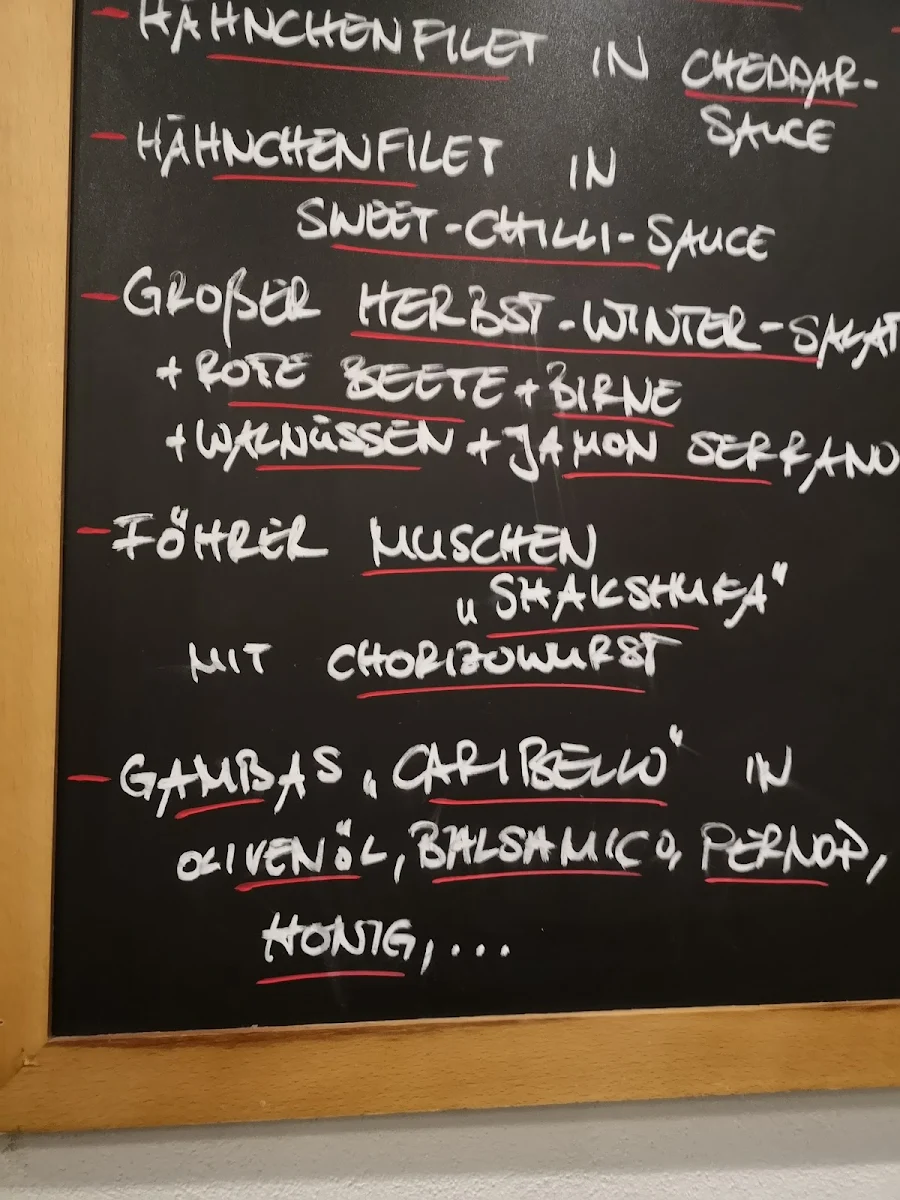 - HÄHNCHENFILET IN CHEDDAR-
SAUCE
- HÄHNCHENFILET IN
SWEET-CHILLI-SAUCE
- GROßER HERBST-WINTER-SALAT
+ ROTE BEETE + BIRNE
+ WALNÜSSEN + JAMON SERRANO
- FÖHRER MUSCHEN
„SHAKSHUKA"
MIT CHORIZOWURST
- GAMBAS „CARIBELLO" IN
OLIVENÖL, BALSAMICO, PERNOD,
HONIG, ...